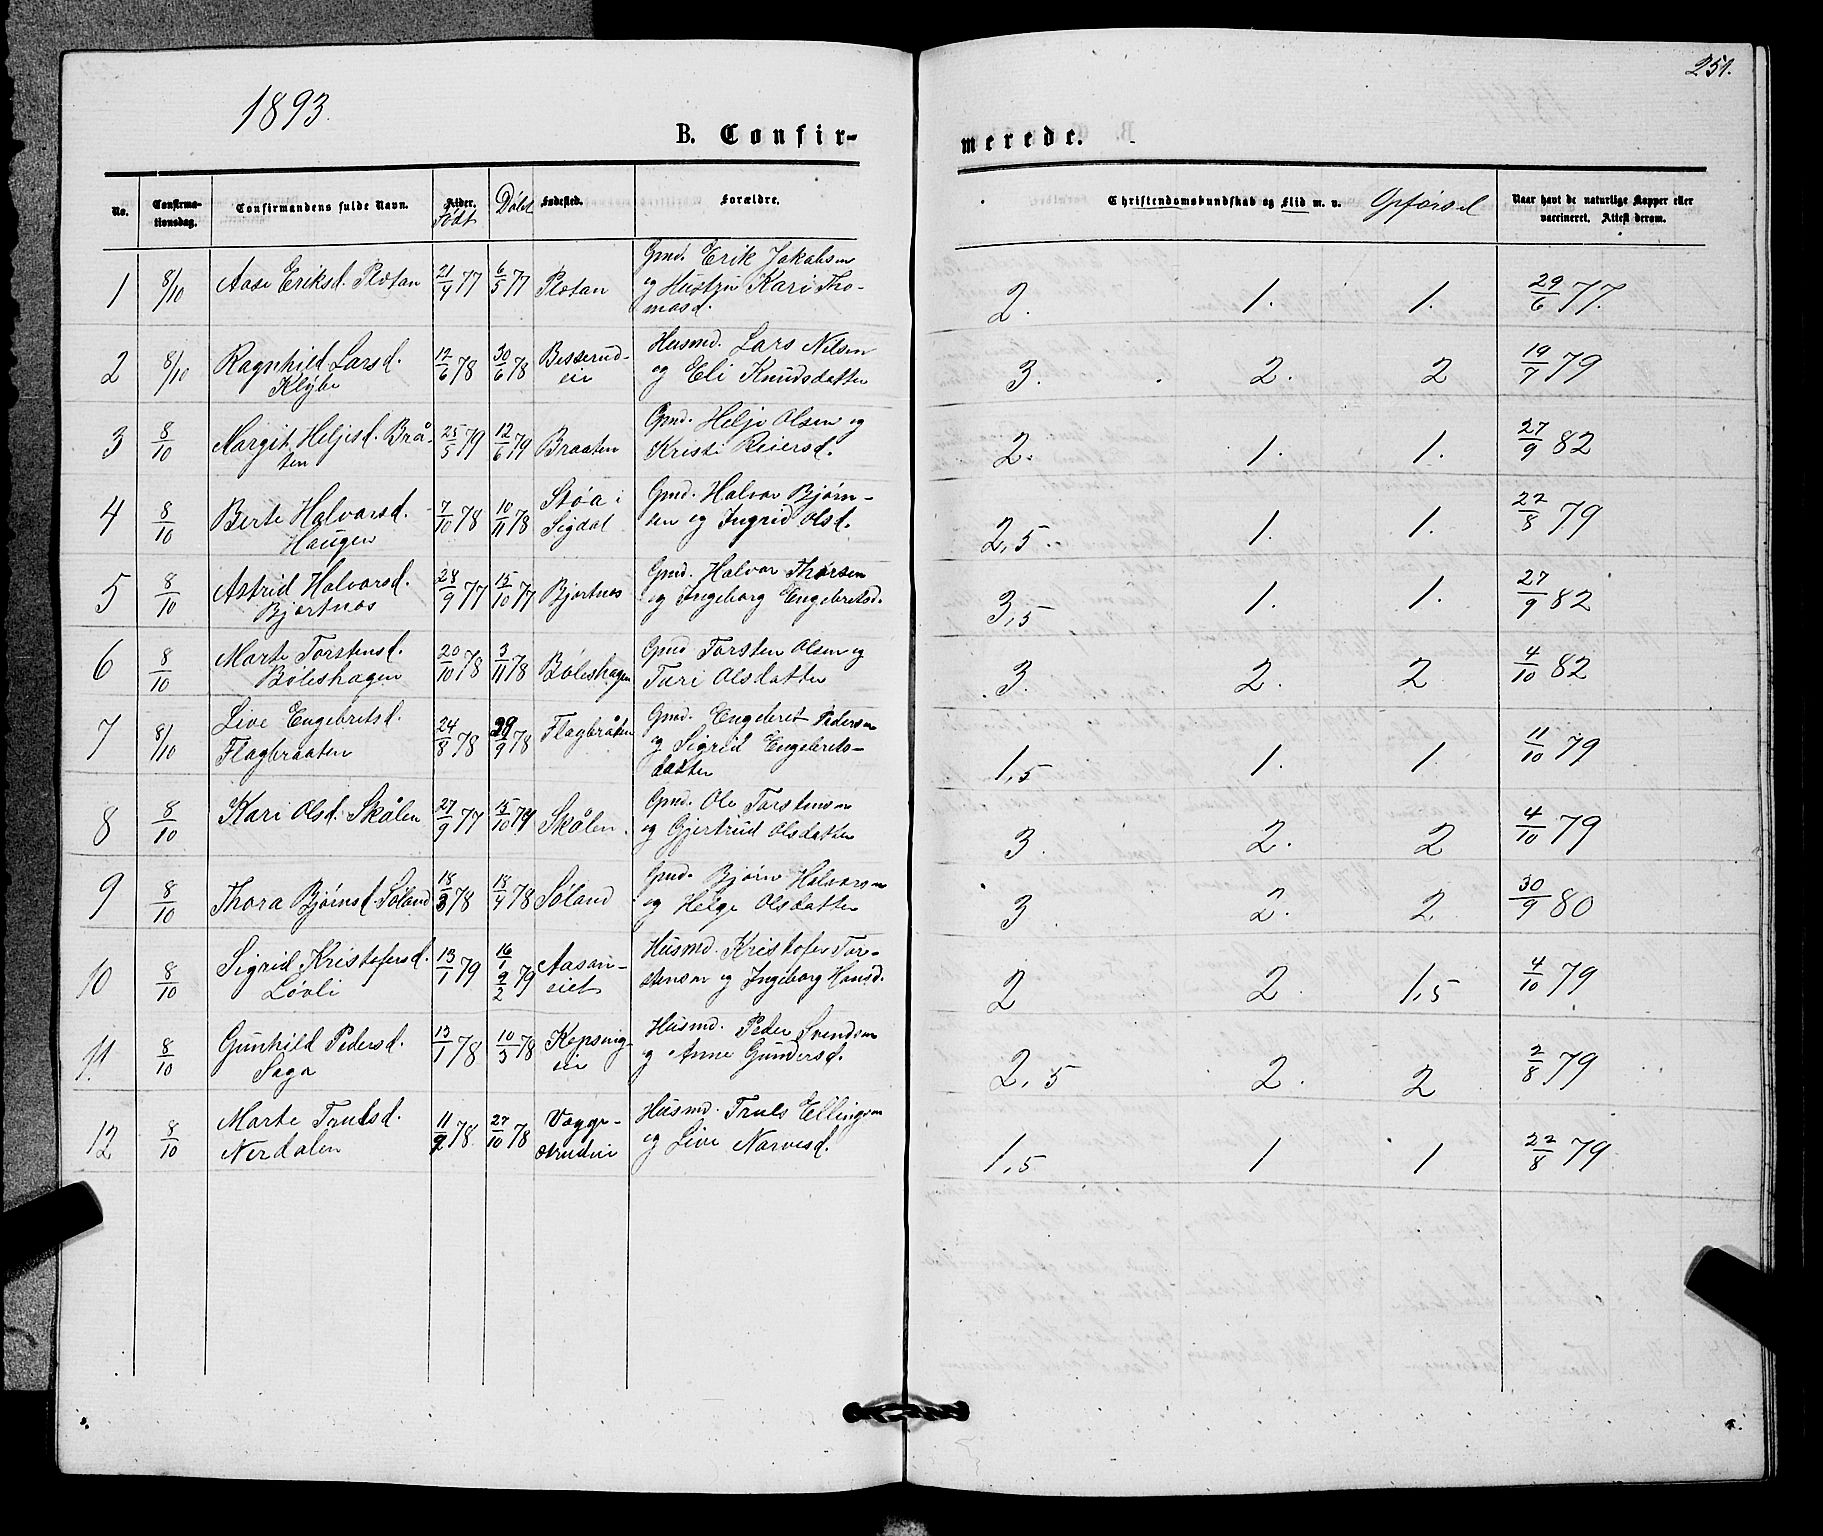 251.
1893.
B. Confir-
merede.
No.
Confirma-
tionsdag.
Confirmandens fulde Navn.
Alder.
Født
Døbt
Fødested.
Forældre.
Christendomskundskab og Flid m. v.
Opførsel
Naar havt de naturlige Kopper eller
vaccineret. Attest derom.
1 8/10 Aase Eriksd. Plotan 21/4 77 6/5 77 Plotan Gmd. Erik Jakobsen
og Hustru Kari Tho-
masd. 2. 1. 1. 29/6 77.
2 8/10 Ragnhild Larsd. 12/6 78 30/6 78 Besserud- Husmd. Lars Nilsen
Klype eie og Eli Knudsdatter 3. 2. 2 19/7 79
3 8/10 Margit Heljesd. Brå- 25/5 79 12/6 79 Braaten Gmd. Helje Olsen og
ten Kristi Reiersd. 2. 1. 1. 27/9 82
4 8/10 Berte Halvorsd. 7/10 78 10/11 78 Støa i Gmd. Halvor Bjørn-
Haugen Sigdal sen og Ingrid Olsd. 2,5 1. 1. 22/8 79
5 8/10 Astrid Halvorsd. 28/9 77 15/10 77 Bjortnes Gmd. Halvor Thorsen
Bjortnos og Ingeborg Engebretsd. 3,5 1. 1. 27/9 82
6 8/10 Marte Torstensd. 20/10 78 3/11 78 Bøleshagen Gmd Torsten Olsen og
Bøleshagen Turi Olsdatter 3. 2. 2 4/10 82
7 8/10 Live Engebretsd. 24/8 78 29/9 78 Flagbråten Gmd. Engebret Pedersen
Flagbraaten og Sigrid Engebrets-
datter 1,5 1. 1. 11/10 79
8 8/10 Kari Olsd. Skålen 27/9 77 15/10 79 Skålen. Gmd. Ole Torstensen
og Gjertrud Olsdatter 3. 2. 2 4/10 79
9 8/10 Thora Bjørnsd. Søland 18/3 78 18/4 78 Søland Gmd. Bjørn Halvorsen
og Helge Olsdatter 3 2. 2. 30/9 80
10 8/10 Sigrid Kristofersd. 13/1 79 16/1 Aasan- Husmd. Kristofer Tor-
Løvli 9/2 79 eiet stensen og Ingeborg Hansd. 2 2. 1,5 4/10 79
11. 8/10 Gunhild Pedersd. 13/1 78 10/3 78 Kopseng- Husmd. Peder Svendsen
Saga eie og Anne Gundersd. 2,5 2. 2 2/8 79
12 8/10 Marte Trulsd. 11/9 78 27/10 78 Vogge- Husmd. Truls Ellingsen
Nerdalen strudeie og Live Narvesd. 1,5 1 1 22/8 79